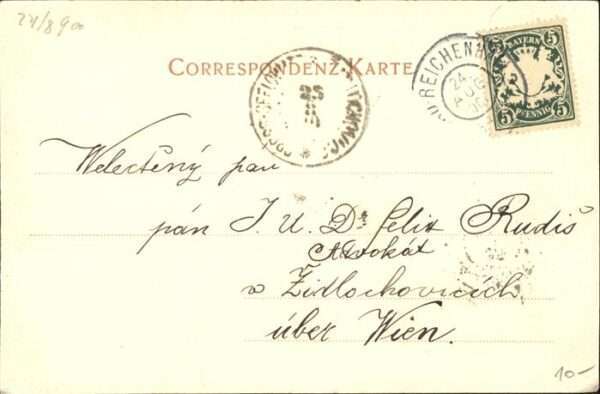 24/8 900
CORRESPONDENZ-KARTE
BAYERN
5 5
5 5
PFENNIG
REICHENH
24
AUG
00
25
8
Welectěný pan
pán J. U. Dr Felix Rudiš
Advokát
v Židlochovicích
über Wien.
10-